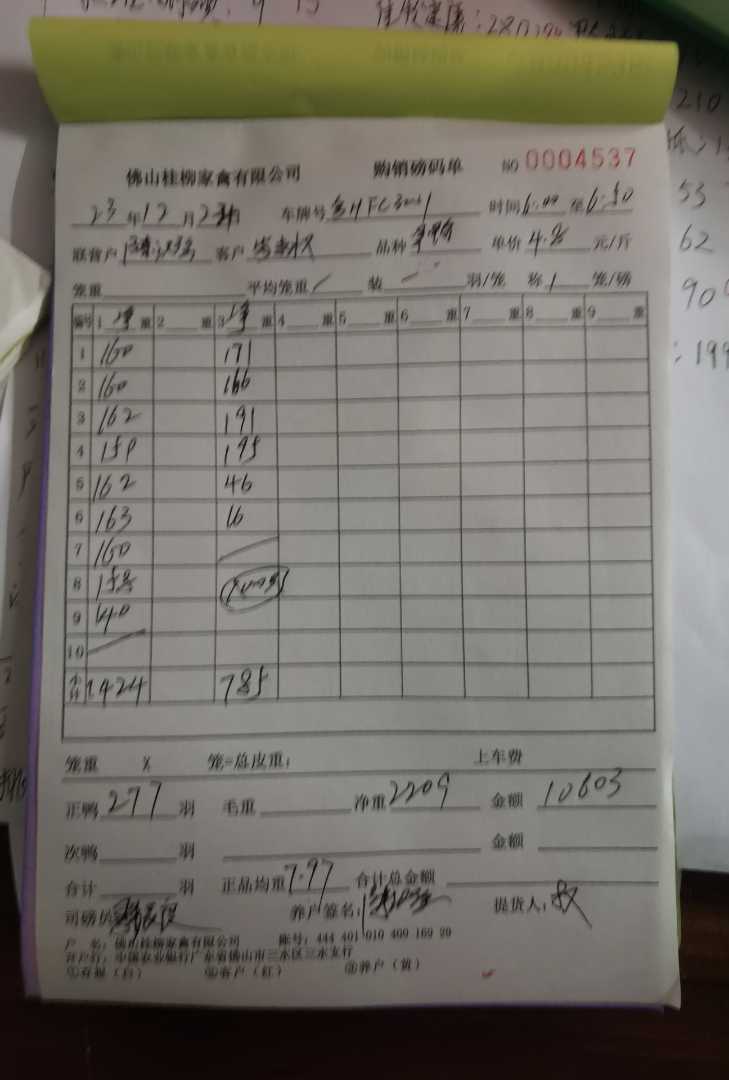 佛山桂柳家禽有限公司 购销磅码单 NO 0004537
23年12月23日 车牌号 FC 时间6:00至6:50
联营户 客户 品种 单价4.8元/斤
笼重 平均笼重 / 装 羽/笼 称 / 笼/磅
编号 1 净 重 2 重 3 净 重 4 重 5 重 6 重 7 重 8 重 9 重
1 160 171
2 160 166
3 162 191
4 159 195
5 162 46
6 163 16
7 160
8 158
9 140
10
小计 1424 785
笼重 X 笼=总皮重: 上车费
正鸭277羽 毛重 净重2209 金额10603
次鸭 羽 金额
合计 羽 正品均重7.97 合计总金额
司磅员 养户签名: 提货人:
户 名: 佛山桂柳家禽有限公司 账号: 444 401 010 400 169 20
开户行: 中国农业银行广东省佛山市三水区三水支行
①存根(白) ②客户(红) ③养户(黄)
210
53
62
90
: 199